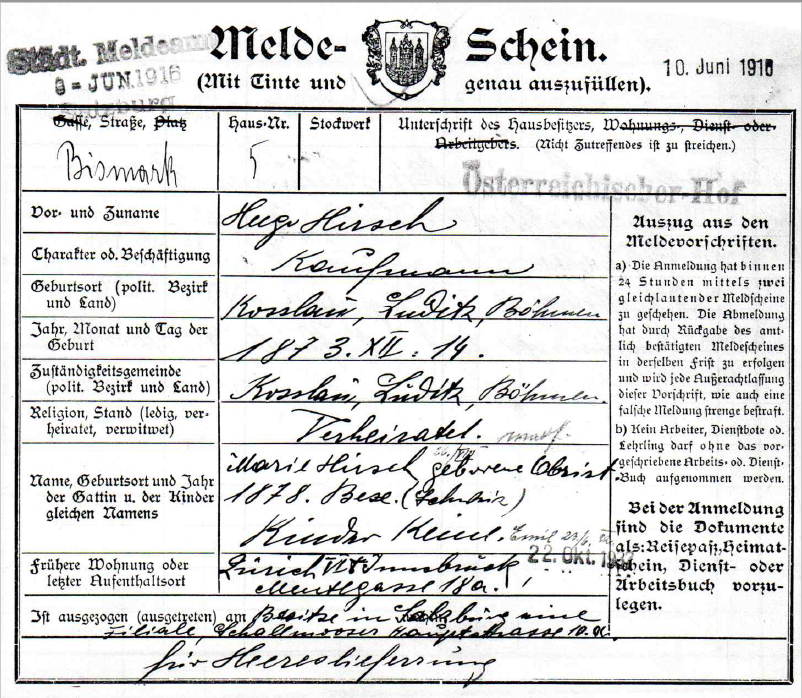 Städt. Meldeamt
9 - JUN. 1916
Salzburg
Melde-Schein.
(Mit Tinte und genau auszufüllen).
10. Juni 1916
Gasse, Straße, Platz
Haus-Nr.
Stockwerk
Unterschrift des Hausbesitzers, Wohnungs-, Dienst- oder
Arbeitgebers. (Nicht Zutreffendes ist zu streichen.)
Bismark
5
Österreichischer Hof
Vor- und Zuname
Hugo Hirsch
Charakter od. Beschäftigung
Kaufmann
Geburtsort (polit. Bezirk
und Land)
Kosslau, Luditz, Böhmen
Jahr, Monat und Tag der
Geburt
1873 3. XII. 14.
Zuständigkeitsgemeinde
(polit. Bezirk und Land)
Kosslau, Luditz, Böhmen.
Religion, Stand (ledig, ver-
heiratet, verwitwet)
Verheiratet.
Name, Geburtsort und Jahr
der Gattin u. der Kinder
gleichen Namens
Marie Hirsch geborene Obrist
1878.
Kinder Keine. Emil
22. Okt. 1922
Frühere Wohnung oder
letzter Aufenthaltsort
Zürich Innsbruck
Mentlgasse 18a.
Ist ausgezogen (ausgetreten) am
Besitze in Salzburg eine
Filiale, Schallmooser Hauptstrasse 10
für Heereslieferung
Auszug aus den
Meldevorschriften.
a) Die Anmeldung hat binnen
24 Stunden mittels zwei
gleichlautender Meldscheine
zu geschehen. Die Abmeldung
hat durch Rückgabe des amt-
lich bestätigten Meldescheines
in derselben Frist zu erfolgen
und wird jede Außerachtlassung
dieser Vorschrift, wie auch eine
falsche Meldung strenge bestraft.
b) Kein Arbeiter, Dienstbote od.
Lehrling darf ohne das vor-
geschriebene Arbeits- od. Dienst-
Buch aufgenommen werden.
Bei der Anmeldung
sind die Dokumente
als: Reisepaß, Heimat-
schein, Dienst- oder
Arbeitsbuch vorzu-
legen.